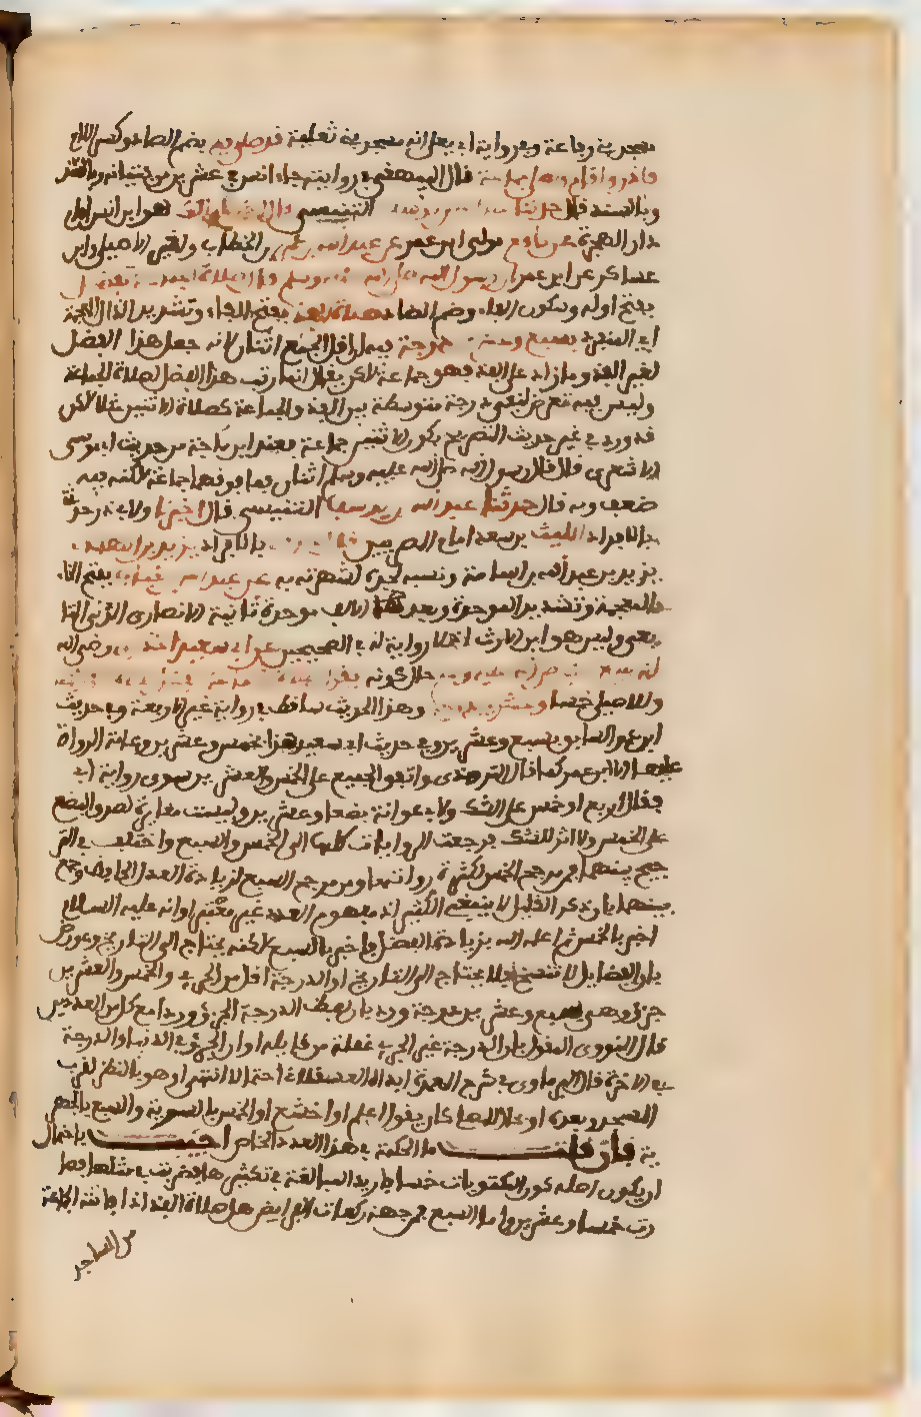 مسجد بني رفاعة وفي رواية ابي يعلى انه مسجد بني ثعلبة قد صلي فيه بضم الصاد وكسر اللام
فاذن واقام وصلى جماعة قال البيهقي في روايته جاء انس في عشرين من فتيانه وبه
وبالسند قال حدثنا عبد الله بن يوسف التنيسي قال اخبرنا مالك هو ابن انس امام
دار الهجرة عن نافع مولى ابن عمر عن عبد الله بن عمر بن الخطاب وللاصيلي وابن
عساكر عن ابن عمر ان رسول الله صلى الله عليه وسلم قال صلاة الجماعة تفضل
بفتح اوله وسكون الفاء وضم الضاد صلاة الفذ بفتح الفاء وتشديد الذال المعجمة
اي المنفرد بسبع وعشرين درجة فيه ان اقل الجمع اثنان لانه جعل هذا الفضل
لغير الفذ وما زاد على الفذ فهو جماعة لكن يقال انما رتب هذا الفضل لصلاة الجماعة
وليس فيه تعرض لنفي درجة متوسطة بين الفذ والجماعة كصلاة الاثنين مثلا لكن
قد ورد في غير حديث التصريح بكون الاثنين جماعة فعند ابن ماجة من حديث ابي موسى
الاشعري قال قال رسول الله صلى الله عليه وسلم اثنان فما فوقهما جماعة لكنه فيه
ضعف وبه قال حدثنا عبد الله بن يوسف التنيسي قال اخبرنا ولابي ذر حدثنا
بالافراد الليث بن سعد امام المصريين قال حدثني بالافراد يزيد بن الهاد
يزيد بن عبد الله بن اسامة ونسبه لجده لشهرته به عن عبد الله بن خباب بفتح الخاء
المعجمة وتشديد الموحدة وبعد الالف موحدة ثانية الانصاري المدني التا
بعي وليس هو ابن الارت اذ لا رواية له في الصحيحين عن ابي سعيد الخدري رضي الله
انه سمع النبي صلى الله عليه وسلم حال كونه يقول صلاة
وللاصيلي خمسا وعشرين درجة وهذا الحديث ساقط في رواية غير الاربعة وفي حديث
ابن عمر السابق بسبع وعشرين وفي حديث ابي سعيد هذا بخمس وعشرين وعامة الرواة
عليها الا ابن عمر كما قال الترمذي واتفق الجميع على الخمس والعشرين سوى رواية ابي
فقال اربع او خمس على الشك ولابي عوانة بضعا وعشرين وليست مغايرة لصدق البضع
على الخمس ولا اثر للشك فرجعت الروايات كلها الى الخمس والسبع واختلف في التر
جيح بينهما فمن رجح الخمس لكثرة رواتها ومن رجح السبع لزيادة العدل الحافظ وجمع
بينهما بان ذكر القليل لا ينفي الكثير اذ مفهوم العدد غير معتبر او انه عليه السلام
اخبر بالخمس ثم اعلمه الله بزيادة الفضل فاخبر بالسبع لكنه يحتاج الى التاريخ وعورض
بان الفضايل لا تنسخ فلا يحتاج الى التاريخ او الدرجة اقل من الجزء والخمس والعشرين
جزءا هي سبع وعشرين درجة ورد بان لفظ الدرجة والجزء وردا مع كل من العددين
قال النووي القول بان الدرجة غير الجزء غفلة من قايله او ان الجزء في الدنيا والدرجة
في الاخرة قال البرماوي في شرح العمدة ابداه القسطلاني احتمالا انتهى او هو بالنظر لقرب
المسجد وبعده او لحال المصلي كان يكون اعلم او اخشع او الخمس بالسرية والسبع بالجهر
ية فان قلت ما الحكمة في هذا العدد الخاص اجيب باحتمال
ان يكون اصله كون المكتوبات خمسا فاريد المبالغة في تكثيرها فضربت في مثلها فصا
رت خمسا وعشرين واما السبع فمن جهة ركعات الفرايض هل صلاة الفذ اذا فاتته الجماعة
من المساجد